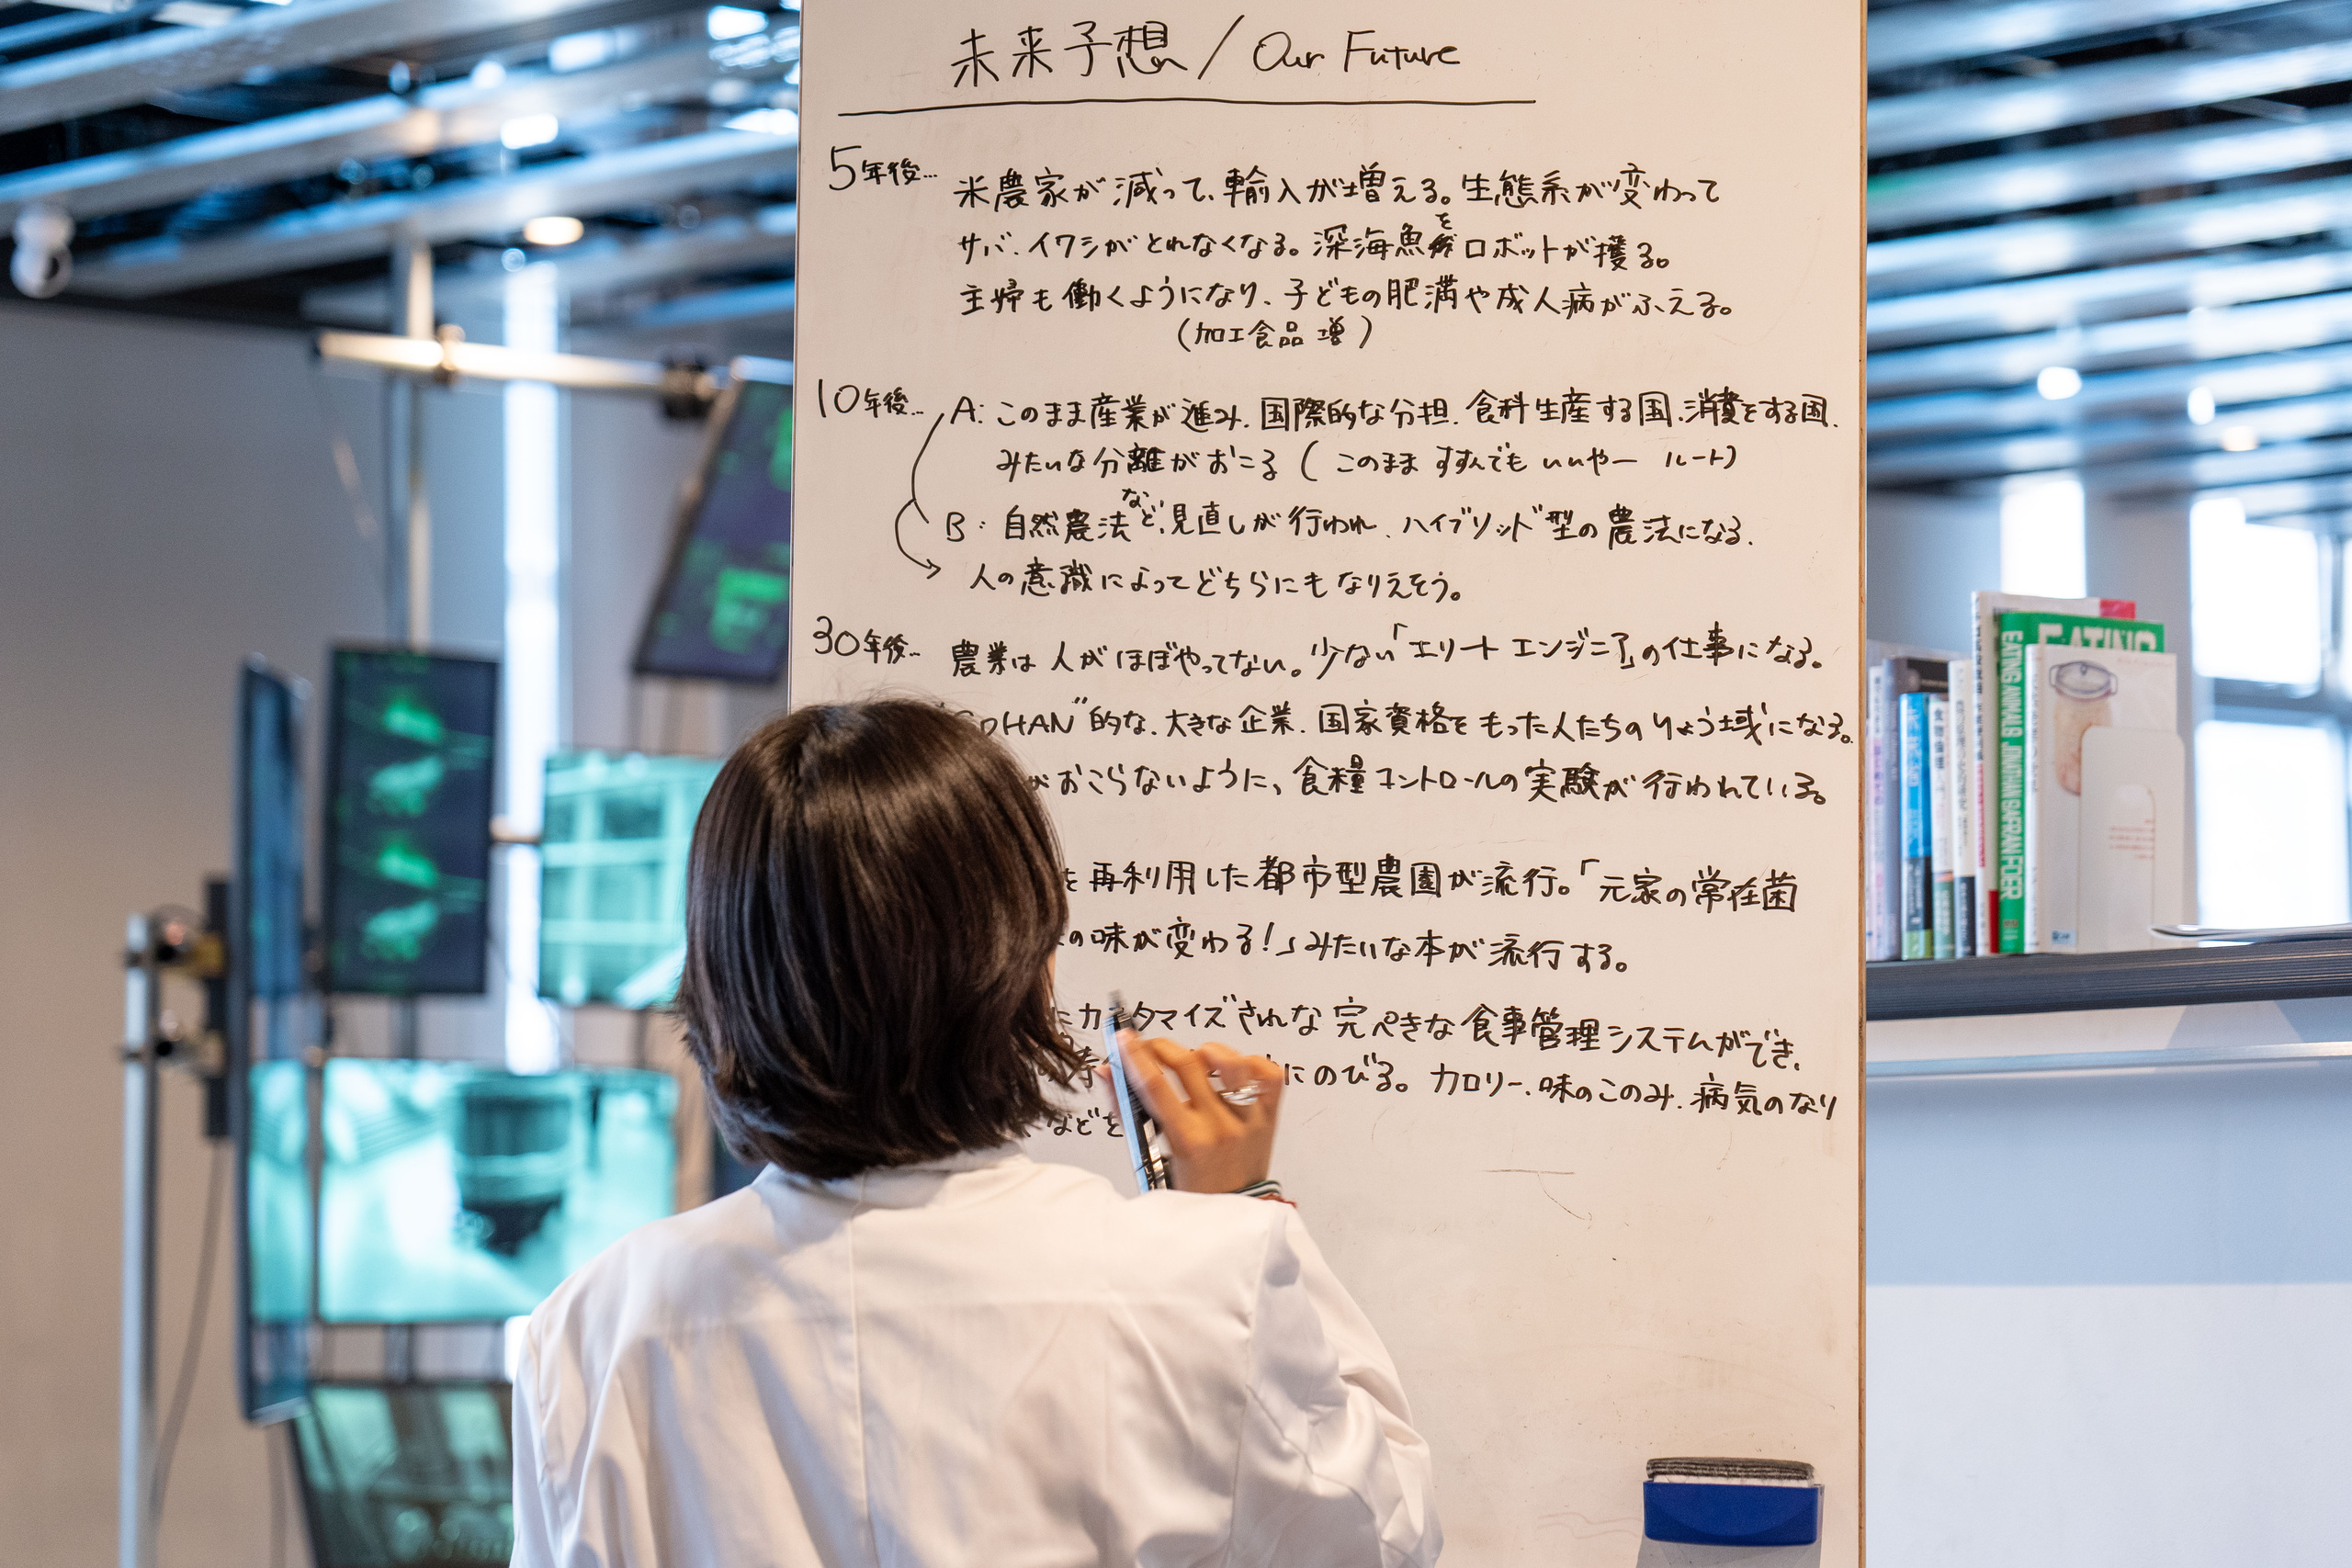 未来予想 / Our Future
5年後… 米農家が減って、輸入が増える。生態系が変わって
サバ、イワシがとれなくなる。深海魚をロボットが獲る。
主婦も働くようになり、子どもの肥満や成人病がふえる。
(加工食品 増)
10年後… A: このまま産業が進み、国際的な分担、食料生産する国、消費をする国、
みたいな分離がおこる ( このまま すすんでも いいやー ルート)
B: 自然農法など、見直しが行われ、ハイブリッド型の農法になる。
人の意識によってどちらにもなりえそう。
30年後… 農業は人がほぼやってない。少ない「エリート エンジニア」の仕事になる。
OHAN"的な、大きな企業、国家資格をもった人たちのりょう域になる。
がおこらないように、食糧コントロールの実験が行われている。
を再利用した都市型農園が流行。「元家の常在菌
の味が変わる!」みたいな本が流行する。
にカスタマイズされな完ぺきな食事管理システムができ、
にのびる。カロリー、味のこのみ、病気のなり
などを
EATING
EATING ANIMALS JONATHAN SAFRAN FOER